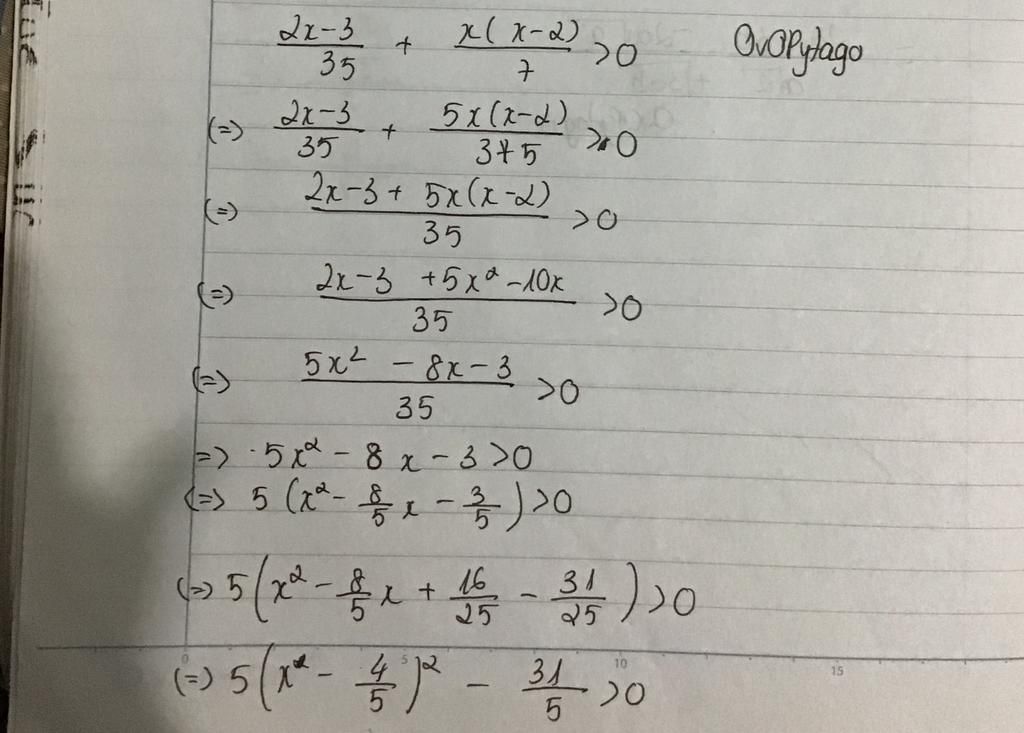 2x-3/35 + x(x-2)/7 >0 OvOPytago
(=) 2x-3/35 + 5x(x-2)/35 >0
(=) 2x-3 + 5x(x-2)/35 >0
(=) 2x-3 +5x²-10x/35 >0
(=) 5x² - 8x-3/35 >0
=> 5x² - 8x - 3>0
(=) 5(x² - 8/5x - 3/5)>0
(=) 5(x² - 8/5x + 16/25 - 31/25)>0
0 5 10 15
(=) 5(x - 4/5)² - 31/5 >0